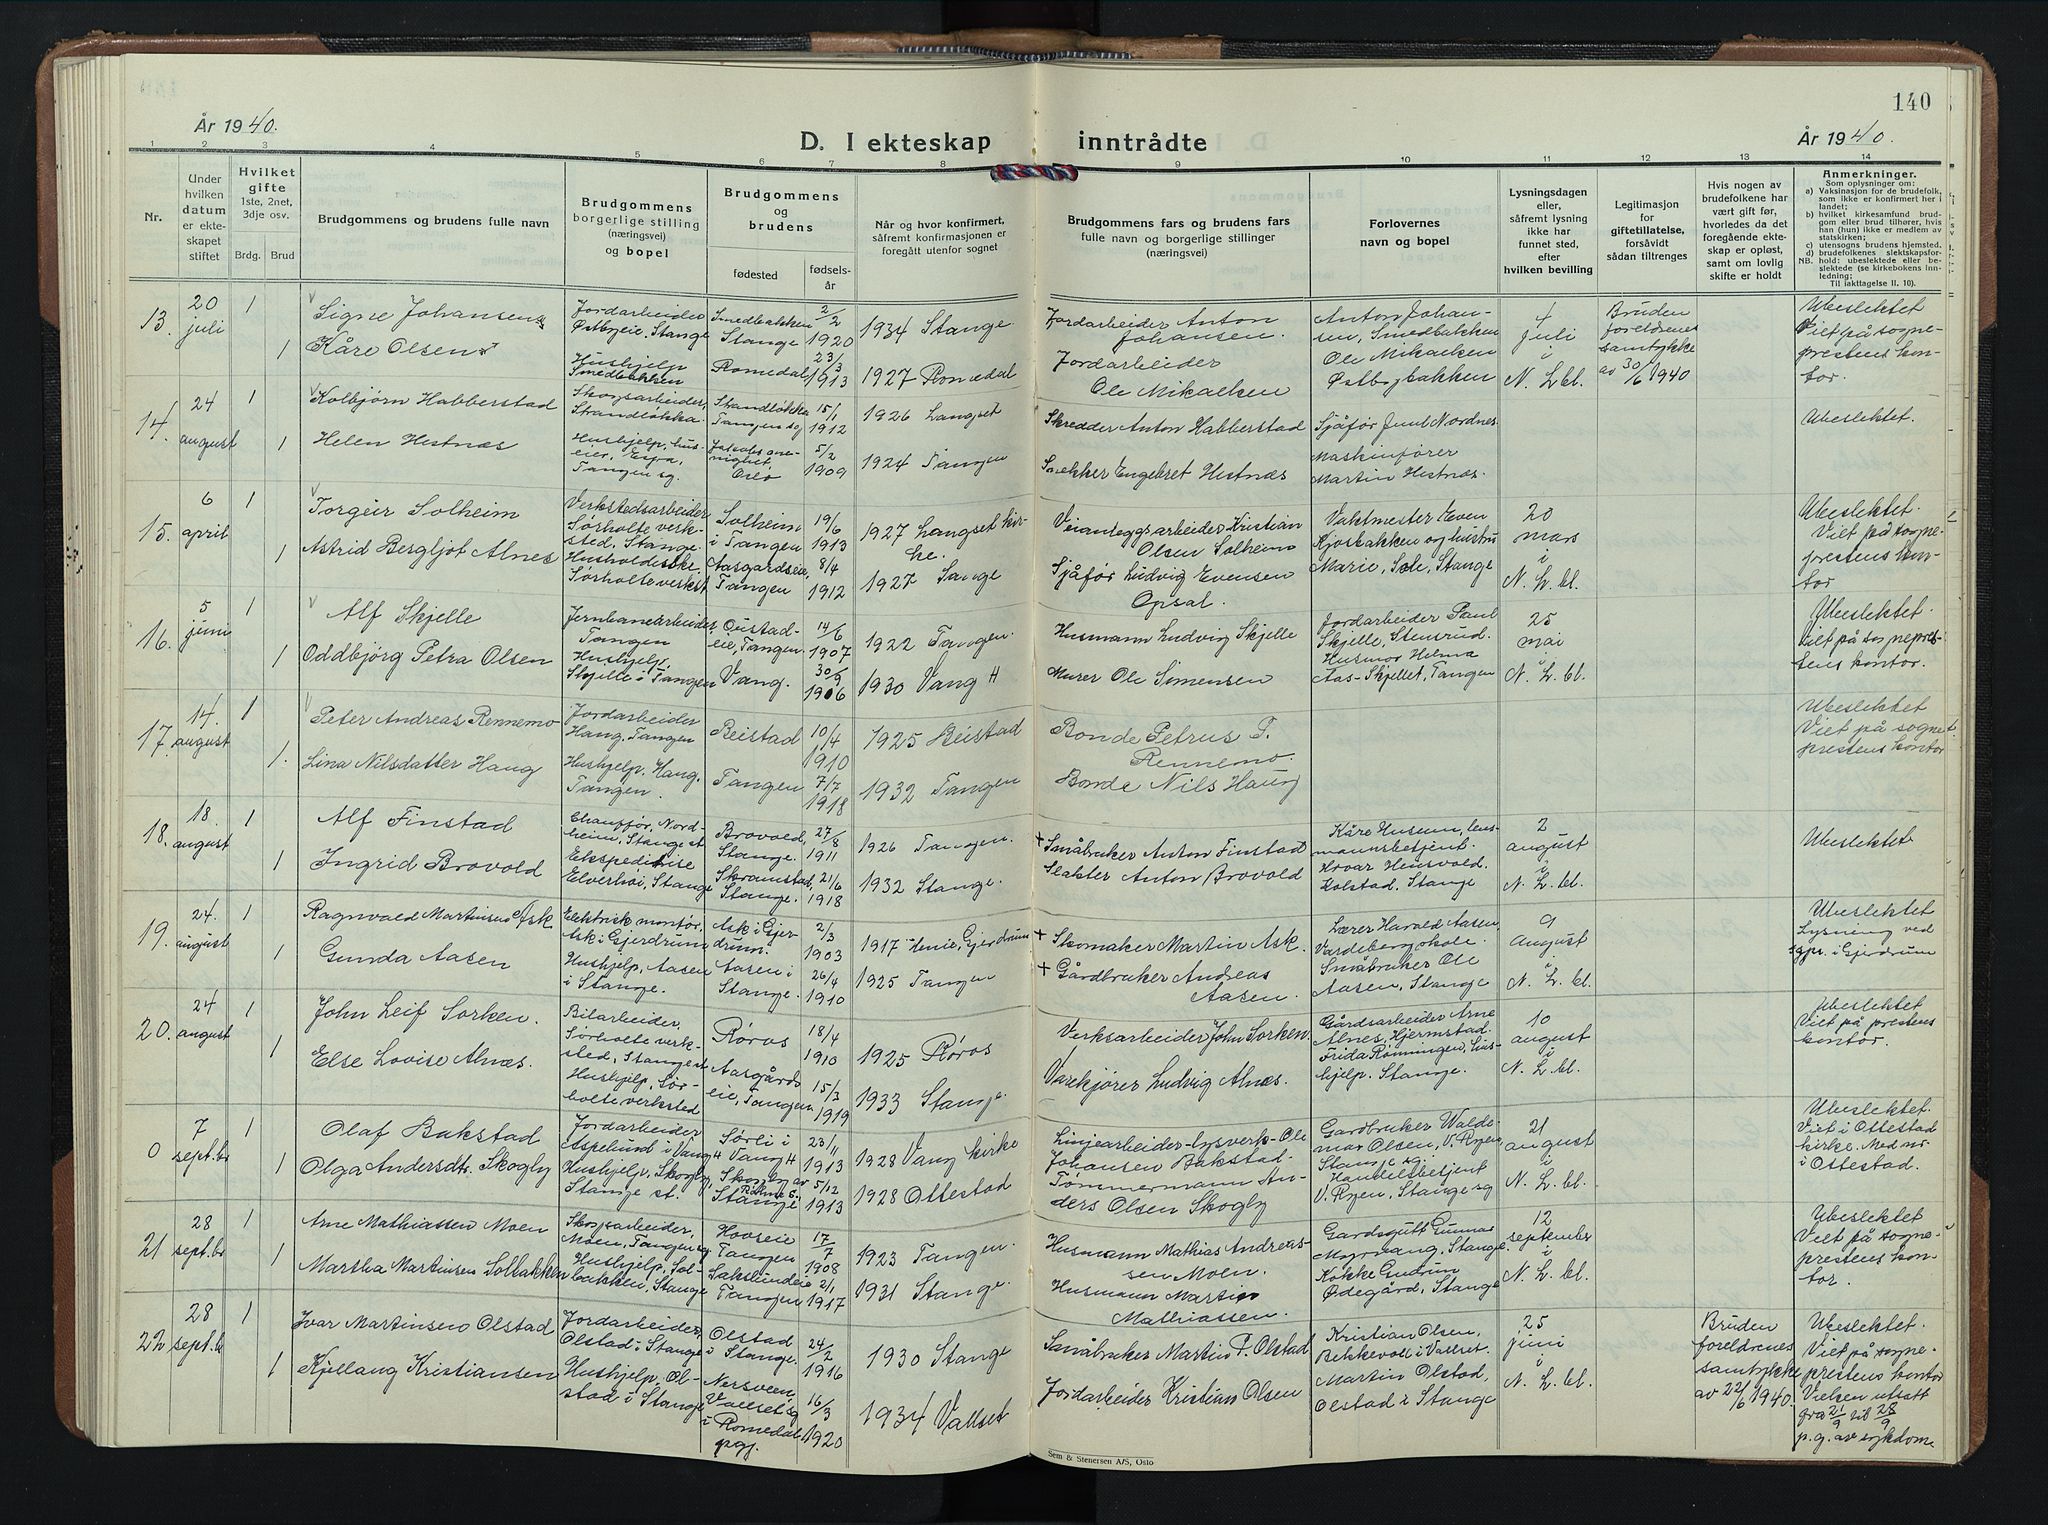 År 1940.
D. I ekteskap inntrådte
140
År 1940.
1 2 3 4 5 6 7 8 9 10 11 12 13 14
Nr.
Under hvilken datum er ekteskapet stiftet
Hvilket gifte 1ste, 2net, 3dje osv.
Brdg. Brud
Brudgommens og brudens fulle navn
Brudgommens borgerlige stilling (næringsvei) og bopel
Brudgommens og brudens
fødested
fødselsår
Når og hvor konfirmert, såfremt konfirmasjonen er foregått utenfor sognet
Brudgommens fars og brudens fars fulle navn og borgerlige stillinger (næringsvei)
Forlovernes navn og bopel
Lysningsdagen eller, såfremt lysning ikke har funnet sted, efter hvilken bevilling
Legitimasjon for giftetillatelse, forsåvidt sådan tiltrenges
Hvis nogen av brudefolkene har vært gift før, hvorledes da det foregående ekteskap er opløst, samt om lovlig skifte er holdt
Anmerkninger.
Som oplysninger om:
a) Vaksinasjon for de brudefolk, som ikke er konfirmert her i landet;
b) hvilket kirkesamfund brudgom eller brud tilhører, hvis han (hun) ikke er medlem av statskirken;
c) utensogns brudens hjemsted.
d) brudefolkenes slektskapsforhold: ubeslektede eller beslektede (se kirkebokens innledning;
NB. Til iakttagelse II. 10).
13. 20 juli 1 Signe Johansen Jordarbeider Østbyeie, Stange Smedbakken Stange 2/2 1920 1934 Stange Jordarbeider Anton Johansen. Anton Johansen, Smedbakken 4 juli i N. L. bl. Bruden foreldrenes samtykke av 30/6 1940 Ubeslektet Viet på sogneprestens kontor.
1 Kåre Olsen Hushjelp Smedbakken Romedal 23/3 1913 1927 Romedal Jordarbeider Ole Mikaelsen Ole Mikaelsen Østbybakken
14. 24 august 1 Kolbjørn Habberstad Skogsarbeider, Strandløkka. Strandløkka Tangen sg 15/1 1912 1926 Langset Skredder Anton Habberstad Sjåfør Juul Nordnes Ubeslektet.
1 Helen Hestnæs Hushjelp, huseier, Espa, Tangen sg. Oslo 5/2 1909 1924 Tangen Snekker Engebret Hestnæs Maskinfører Martin Hestnæs.
15. 6 april 1 Torgeir Solheim Verkstedsarbeider Sørholte verksted, Stange. Solheim i Tangen 19/6 1913 1927 Langset kirke. Veianleggsarbeider Kristian Olsen Solheim Vaktmester Even Kjosbakken og hustru Marie, Sole, Stange 20 mars i N. L. bl. Ubeslektet. Viet på sogneprestens kontor
1 Astrid Bergljot Alnes Husholderske, Sørholte verkst Aasgardseie, Tangen 8/4 1912 1927 Stange Sjåfør Ludvig Evensen Opsal.
16. 5 juni 1 Alf Skjelle Jernbanearbeider, Tangen Oustadeie, Tangen 14/6 1907 1922 Tangen. Husmann Ludvig Skjelle Jordarbeider Paul Skjelle, Stensrud. 25 mai i N. L. bl. Ubeslektet. Viet på sogneprestens kontor.
1 Oddbjørg Petra Olsen Hushjelp, Skjelle i Tangen Vang. 1906 1930 Vang H Murer Ole Simensen Husmor Helma Aas-Skjellet, Tangen
17. 14. august 1 Peter Andreas Rennemo Jordarbeider Haug, Tangen Beistad 10/4 1910 1925 Beistad Bonde Petrus P. Rennemo. Ubeslektet Viet på sogneprestens kontor
1. Lina Nilsdatter Haug Hushjelp, Haug, Tangen. Tangen 7/7 1918 1932 Tangen Bonde Nils Haug
18. 18. august 1 Alf Finstad Chauffør, Nordheim, Stange st Brovold, Stange. 27/8 1911 1926 Tangen. + Småbruker Anton Finstad Kåre Husum, lensmannsbetjent. 2 august i N. L. bl. Ubeslektet
1 Ingrid Brovold Ekspeditrise Elverhøi, Stange Skramstad, Stange. 21/6 1918 1932 Stange. Slakter Anton Brovold Hroar Hensvold, Kolstad, Stange
19. 24. august 1 Ragnvald Martinsen Ask Elektrisk montør, Ask i Gjerdrum Ask i Gjerdrum. 2/3 1903 1917 Heni, Gjerdrum + Skomaker Martin Ask. Lærer Harald Aasen, Vardeberg skole. 9 august i N. L. bl. Ubeslektet Lysning ved sgpr. i Gjerdrum
1 Gunda Aasen Hushjelp, Aasen i Stange. Aasen i Stange. 26/4 1910 1925 Tangen + Gårdbruker Andreas Aasen. Småbruker Ole Aasen, Stange
20. 24 august 1 John Leif Sorken. Bilarbeider, Sørholte verksted, Stange st Røros 18/4 1910 1925 Røros Verksarbeider John Sorken. Gårdsarbeider Arne Alnes, Hjermstad. 10 august i N. L. bl. Ubeslektet Viet på prestens kontor.
1 Else Lovise Alnæs. Hushjelp, Sørholte verksted Aasgårdseie, Tangen 15/3 1919 1933 Stange. Varekjører Ludvig Alnæs. Frida Rønningen, hushjelp. Stange.
0 7 sept.br 1 Olaf Bakstad Jordarbeider Aspelund i Vang H Sørli i Vang H 23/11 1913 1928 Vang kirke Linjearbeider-lysverk-Ole Johansen Bakstad. Gardbruker Waldemar Olsen, V. Ryen, Stange sg. 21 august i N. L. bl. Ubeslektet. Viet i Ottestad kirke. Med nr i Ottestad.
1 Olga Andersdtr. Skogly Hushjelp, Skogly, Stange st. Skogly av Stange 5/12 1913 1928 Ottestad Tømmermann Anders Olsen Skogly Handelsbetjent V. Ryen, Stange sg
21 28 sept.br 1 Arne Mathiassen Moen Skogsarbeider, Moen, Tangen sg Hovseie Tangen 17/7 1908 1923 Tangen. Husmann Mathias Andreassen Moen. Gardsgutt Gunnar Myrvang, Stange 12 september i N. L. bl. Ubeslektet Viet på sogneprestens kontor.
1 Martha Martinsen Solbakken Hushjelp, Solbakken, Stange Sakslundeie Tangen 2/1 1917 1931 Stange. Husmann Martin Mathiassen. Kokke Gudrun Ødegård, Stange
22 28 sept.b 1 Ivar Martinsen Olstad Jordarbeider, Olstad i Stange Olstad i Stange. 24/2 1916 1930 Stange Småbruker Martin P. Olstad Kristian Olsen, Bekkevoll i Vallset. 25 juni i N. L. bl. Bruden foreldrenes samtykke av 22/6 1940. Ubeslektet. Viet på sogneprestens kontor Vielsen utsatt fra 21/9 til 28/9 p. g. av sykdom.
1 Kjellaug Kristiansen Hushjelp, Olstad i Stange Nersveen, Vallset sg i Romedal pgj. 16/3 1920 1934 Vallset Jordarbeider Kristian Olsen Martin Olstad, Olstad i Stange
Sem & Stenersen A/S, Oslo